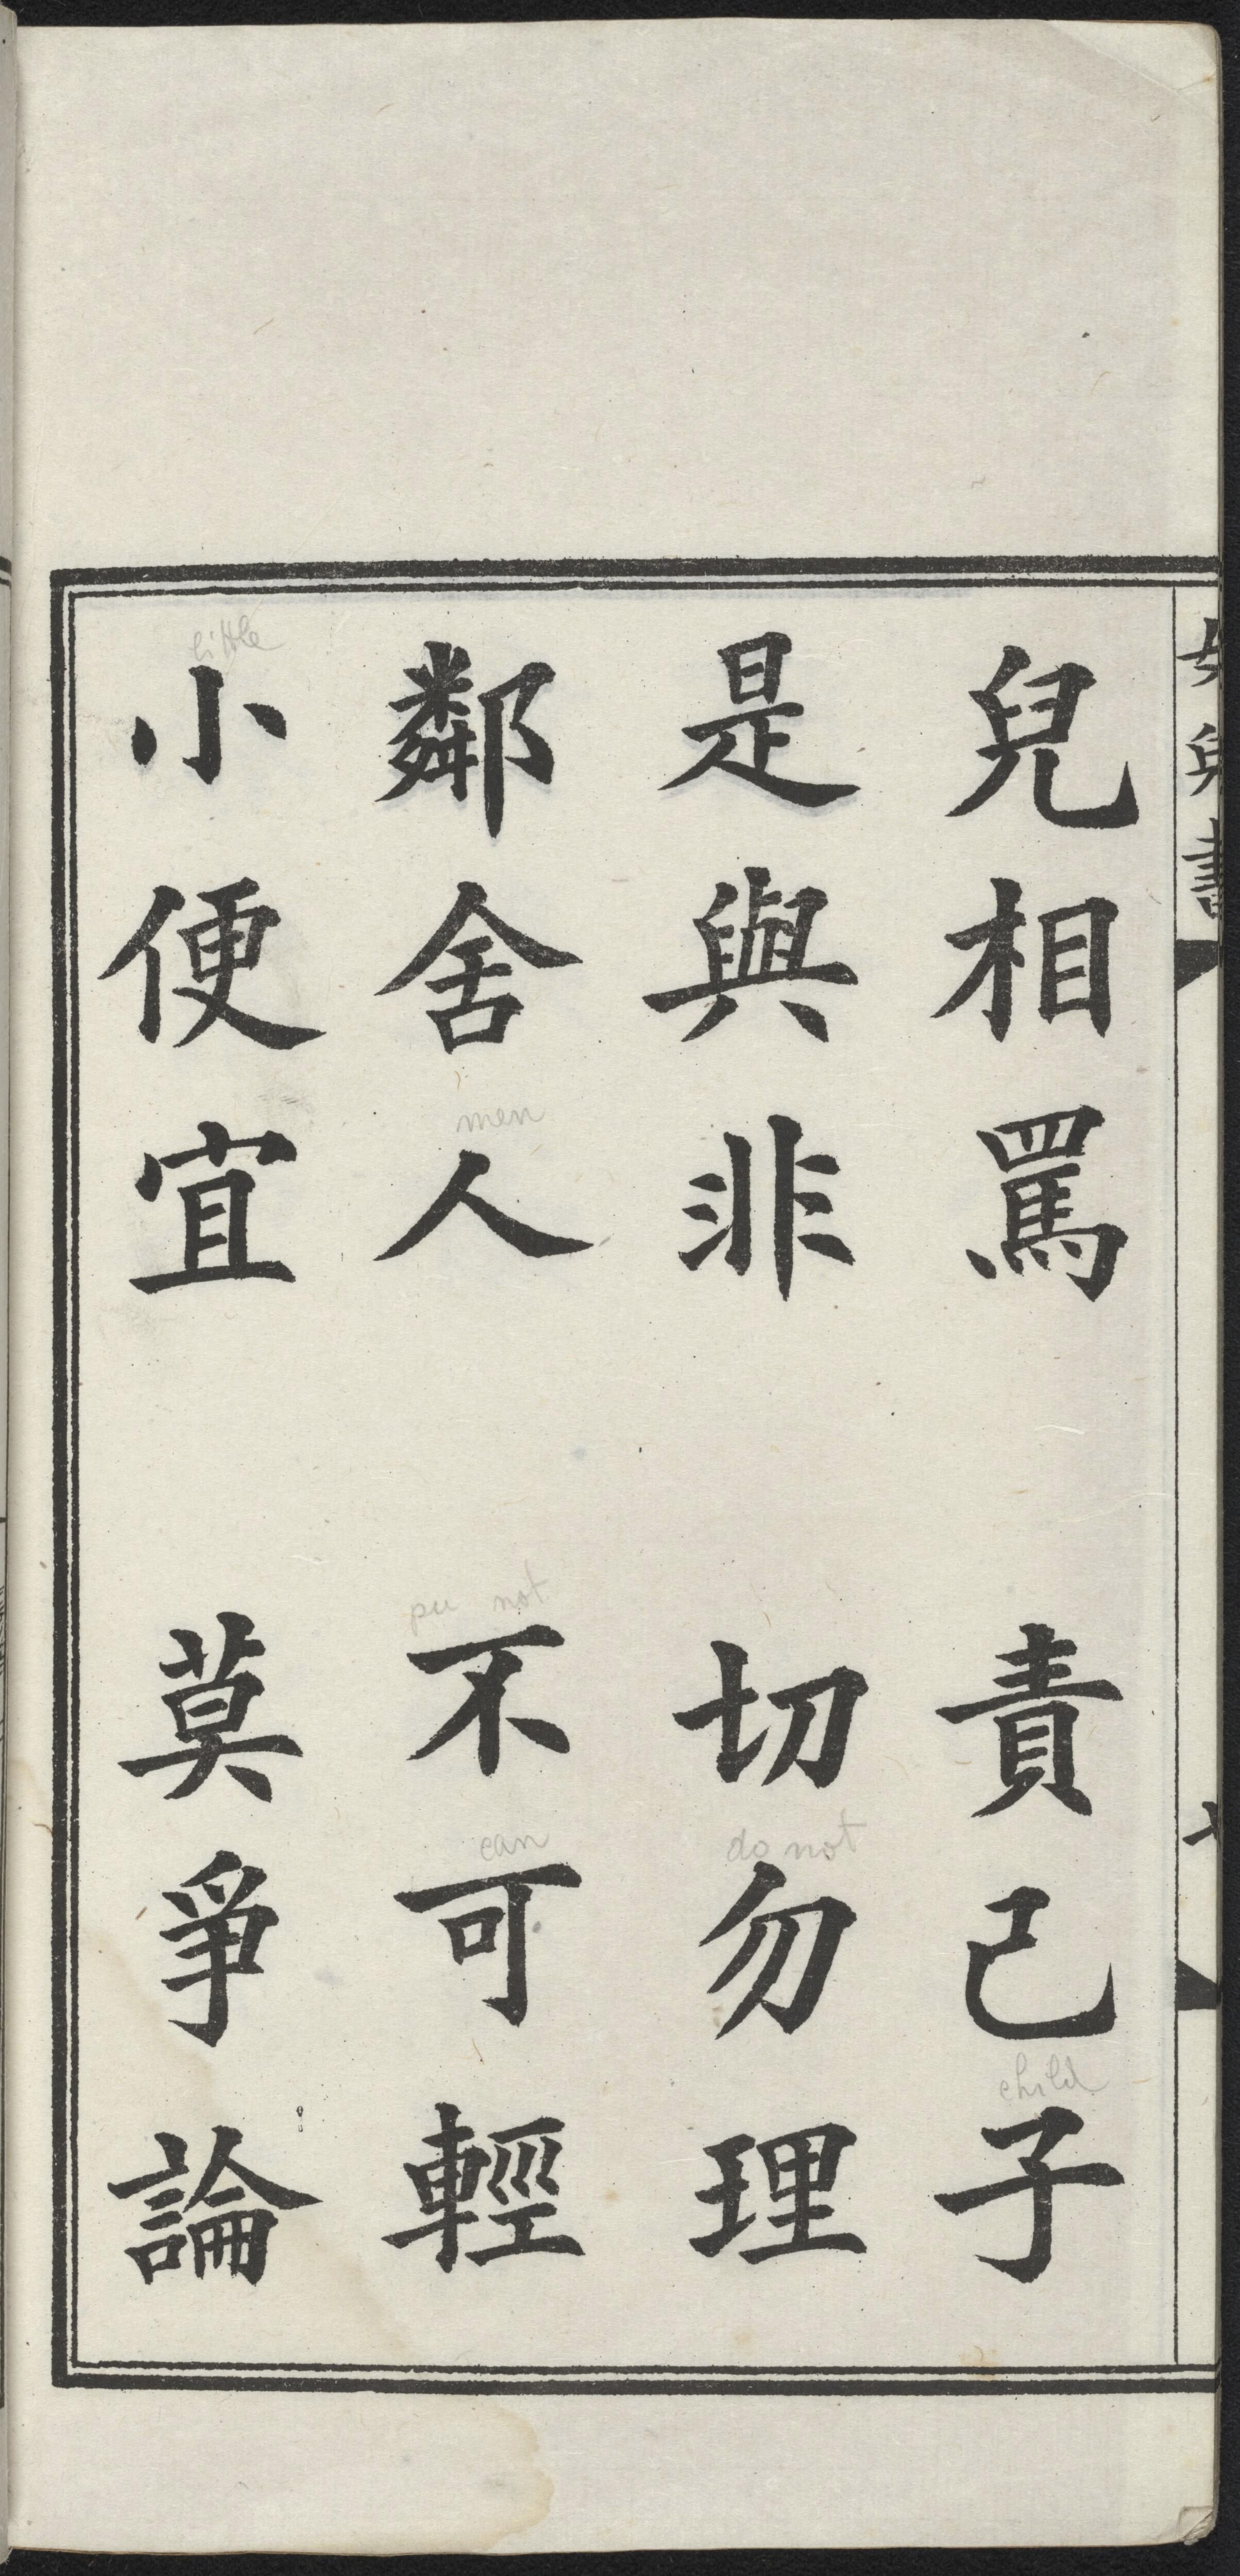 兒相罵　責己子
是與非　切勿理
do not
child
鄰舍人　不可輕
men
pu not
can
小便宜　莫爭論
little